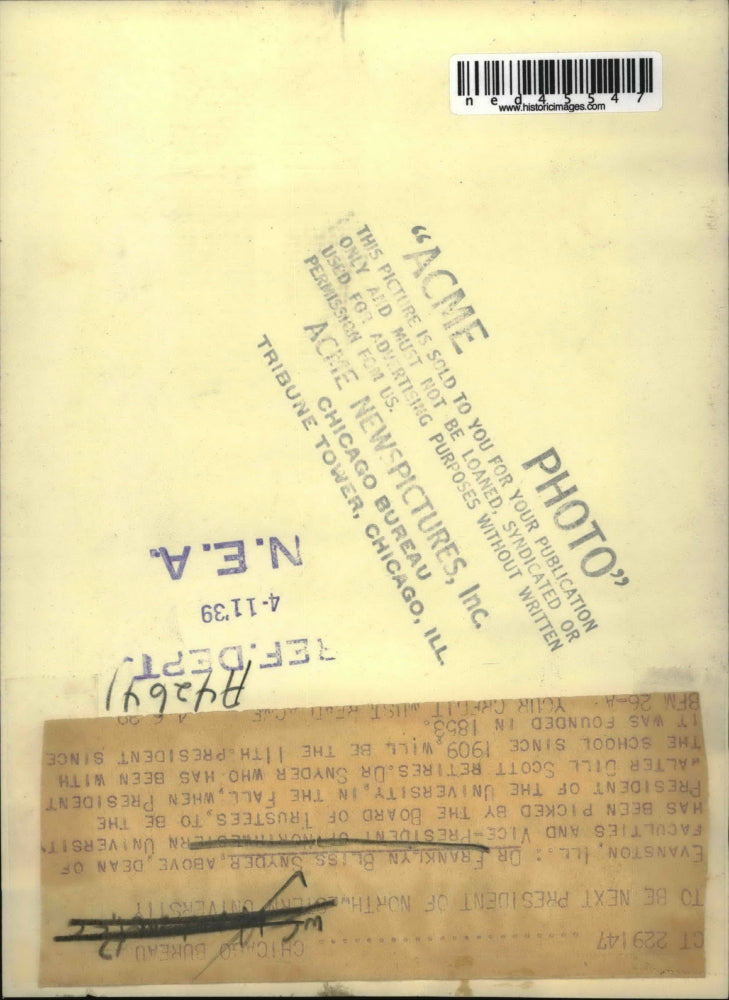 ned45547
www.historicimages.com
"ACME PHOTO"
THIS PICTURE IS SOLD TO YOU FOR YOUR PUBLICATION
ONLY AND MUST NOT BE LOANED, SYNDICATED OR
USED FOR ADVERTISING PURPOSES WITHOUT WRITTEN
PERMISSION FOM US.
ACME NEWSPICTURES, Inc.
CHICAGO BUREAU
TRIBUNE TOWER, CHICAGO, ILL.
REF. DEPT.
4-11'39
N.E.A.
CT 229147 CHICAGO BUREAU
TO BE NEXT PRESIDENT OF NORTHWESTERN UNIVERSITY
EVANSTON, ILL.: DR FRANKLYN BLISS SNYDER, ABOVE, DEAN OF
FACULTIES AND VICE-PRESIDENT OF NORTHWESTERN UNIVERSITY
HAS BEEN PICKED BY THE BOARD OF TRUSTEES, TO BE THE
PRESIDENT OF THE UNIVERSITY, IN THE FALL, WHEN PRESIDENT
WALTER DILL SCOTT RETIRES. DR SNYDER WHO HAS BEEN WITH
THE SCHOOL SINCE 1909, WILL BE THE 11TH PRESIDENT SINCE
IT WAS FOUNDED IN 1853.
BFM 26-A YOUR CREDIT MUST READ ACME